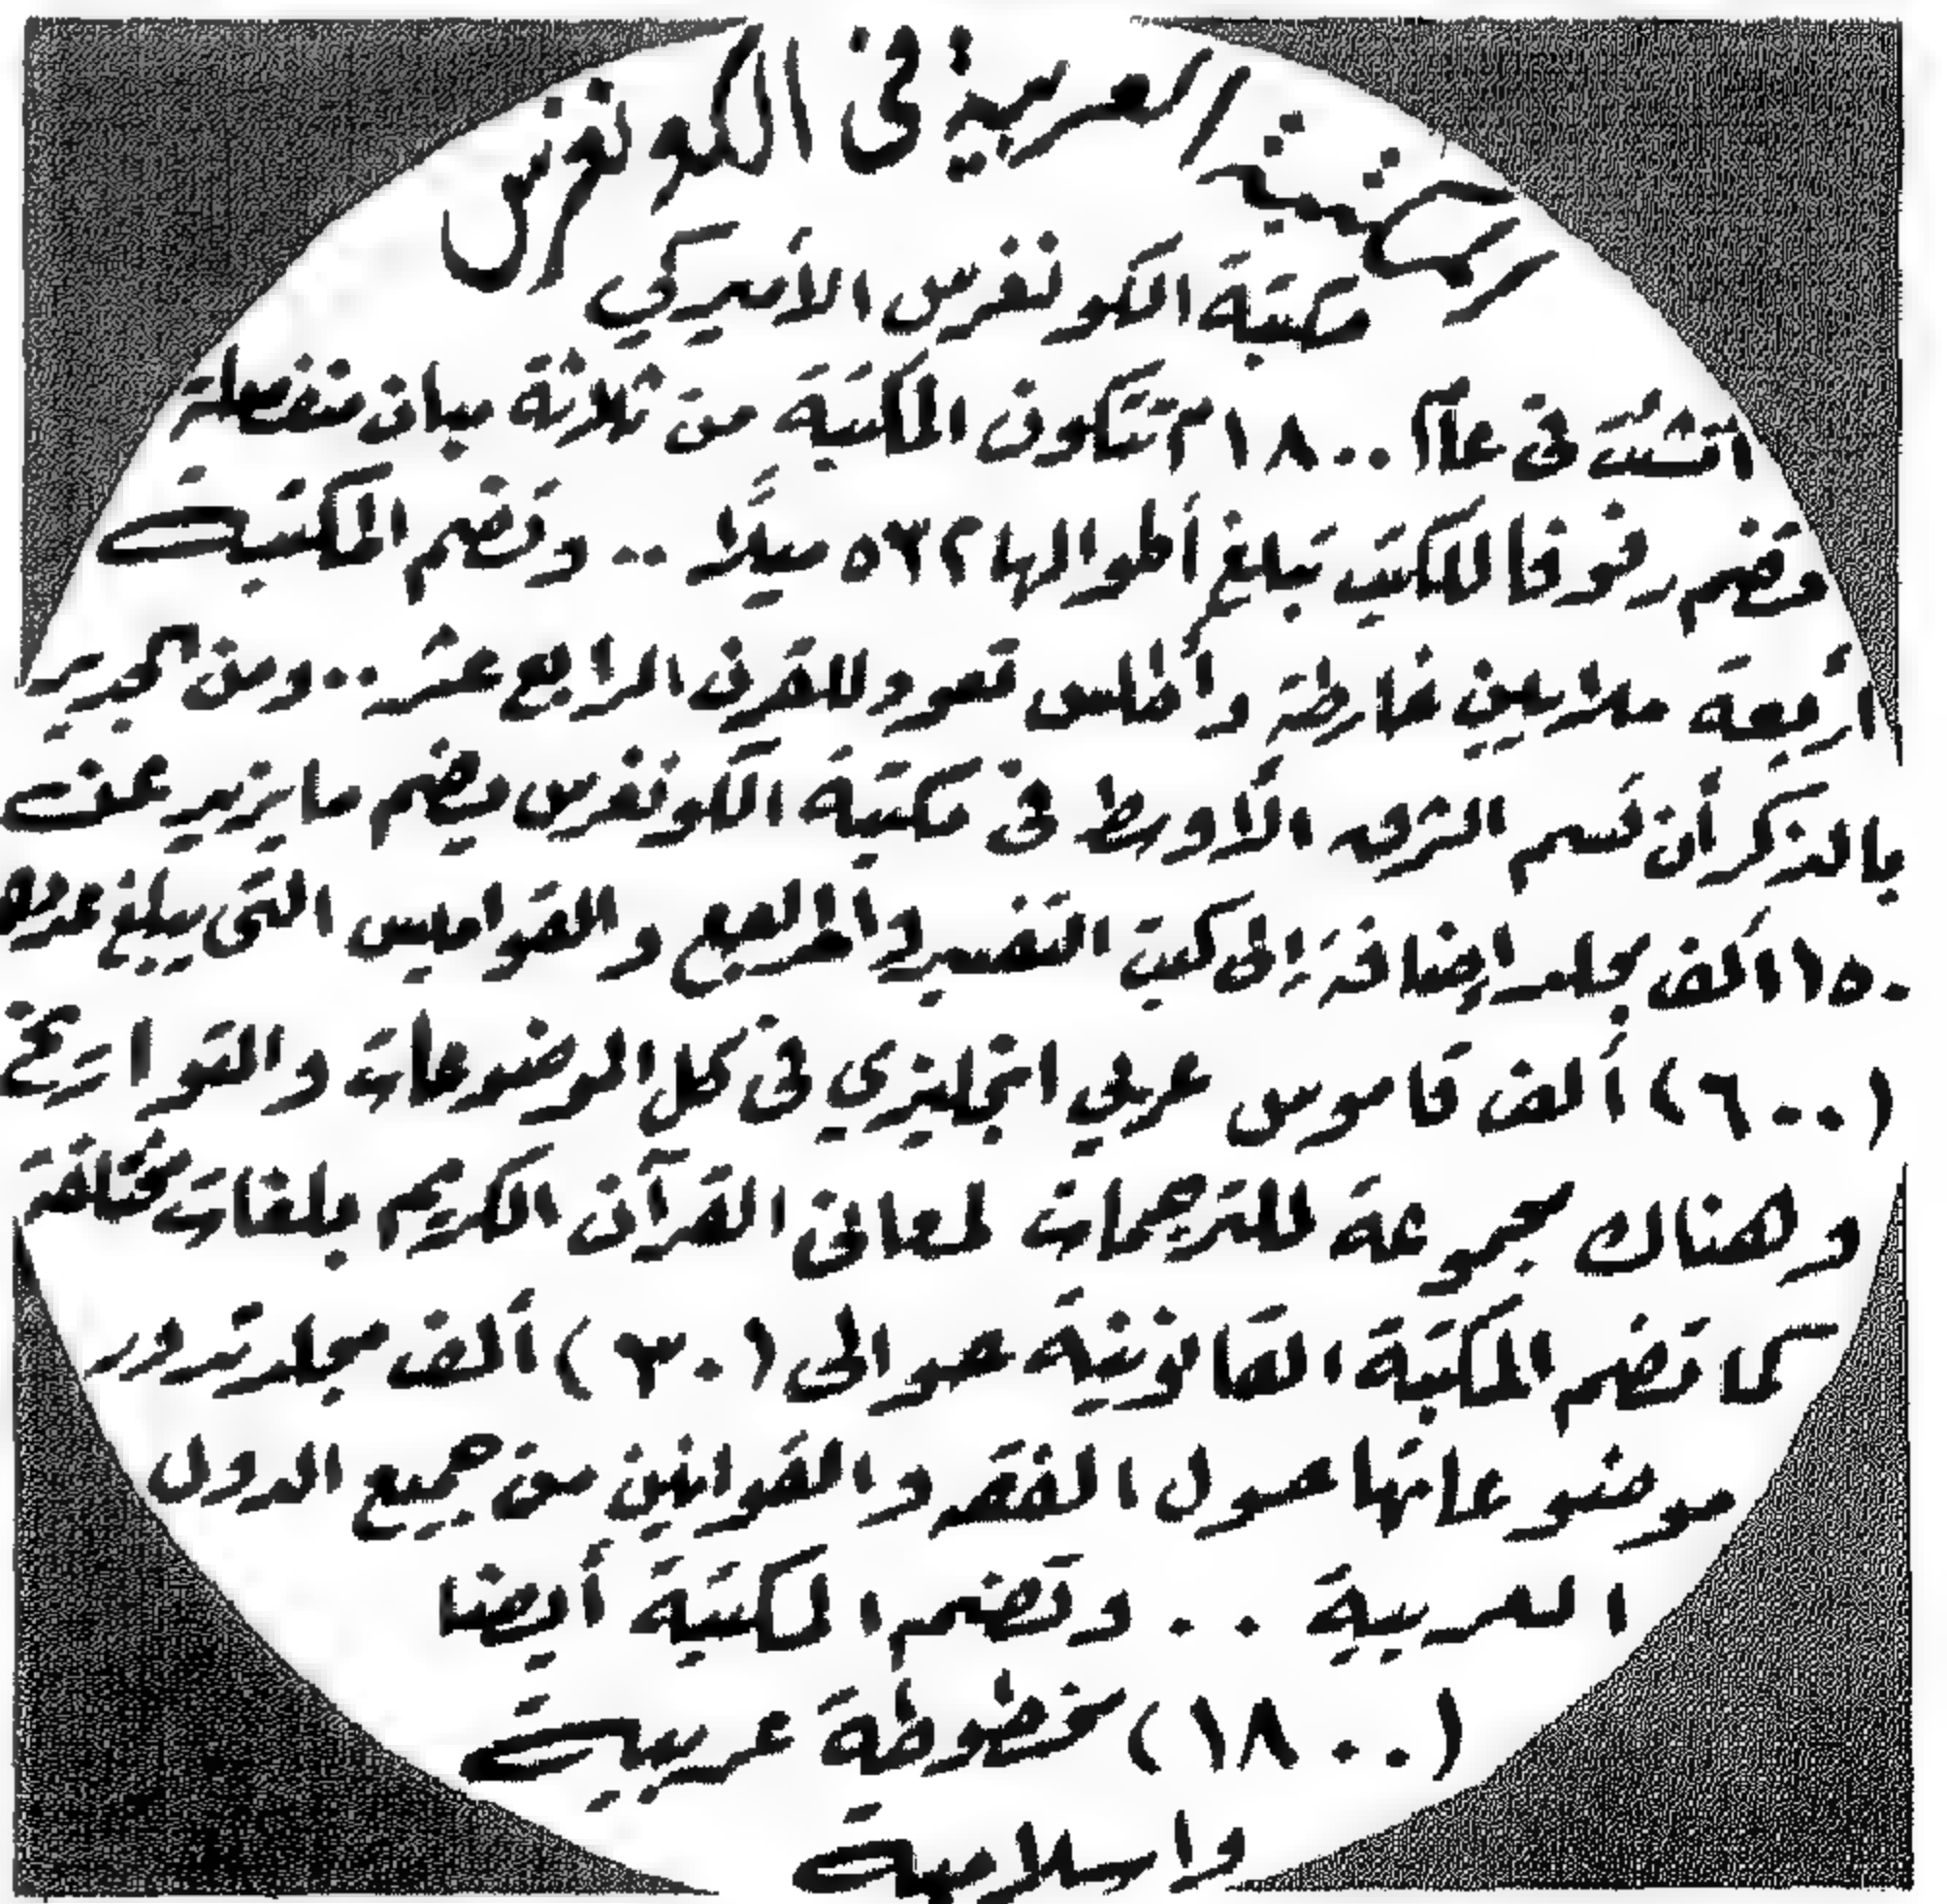 المكتبة العربية في الكونغرس
مكتبة الكونغرس الأميركي
انشئت في عام ١٨٠٠م تتكون المكتبة من ثلاثة مبان منفصلة
وتضم رفوفا للكتب تبلغ أطوالها ٥٦٢ ميلاً .. وتضم المكتبة
أربعة ملايين خارطة وأطلس تعود للقرن الرابع عشر .. ومن الجدير
بالذكر أن قسم الشرق الأوسط في مكتبة الكونغرس يضم ما يزيد عن
١٥٠ ألف مجلد إضافة إلى كتب التفسير والمراجع والقواميس التي يبلغ عددها
(٦٠٠) ألف قاموس عربي انجليزي في كل الموضوعات والتواريخ
وهناك مجموعة للترجمات لمعاني القرآن الكريم بلغات مختلفة
كما تضم المكتبة القانونية حوالى (٣٠) ألف مجلد تدور
موضوعاتها حول الفقه والقوانين من جميع الدول
العربية .. وتضم المكتبة أيضا
(١٨٠٠) مخطوطة عربية
واسلامية